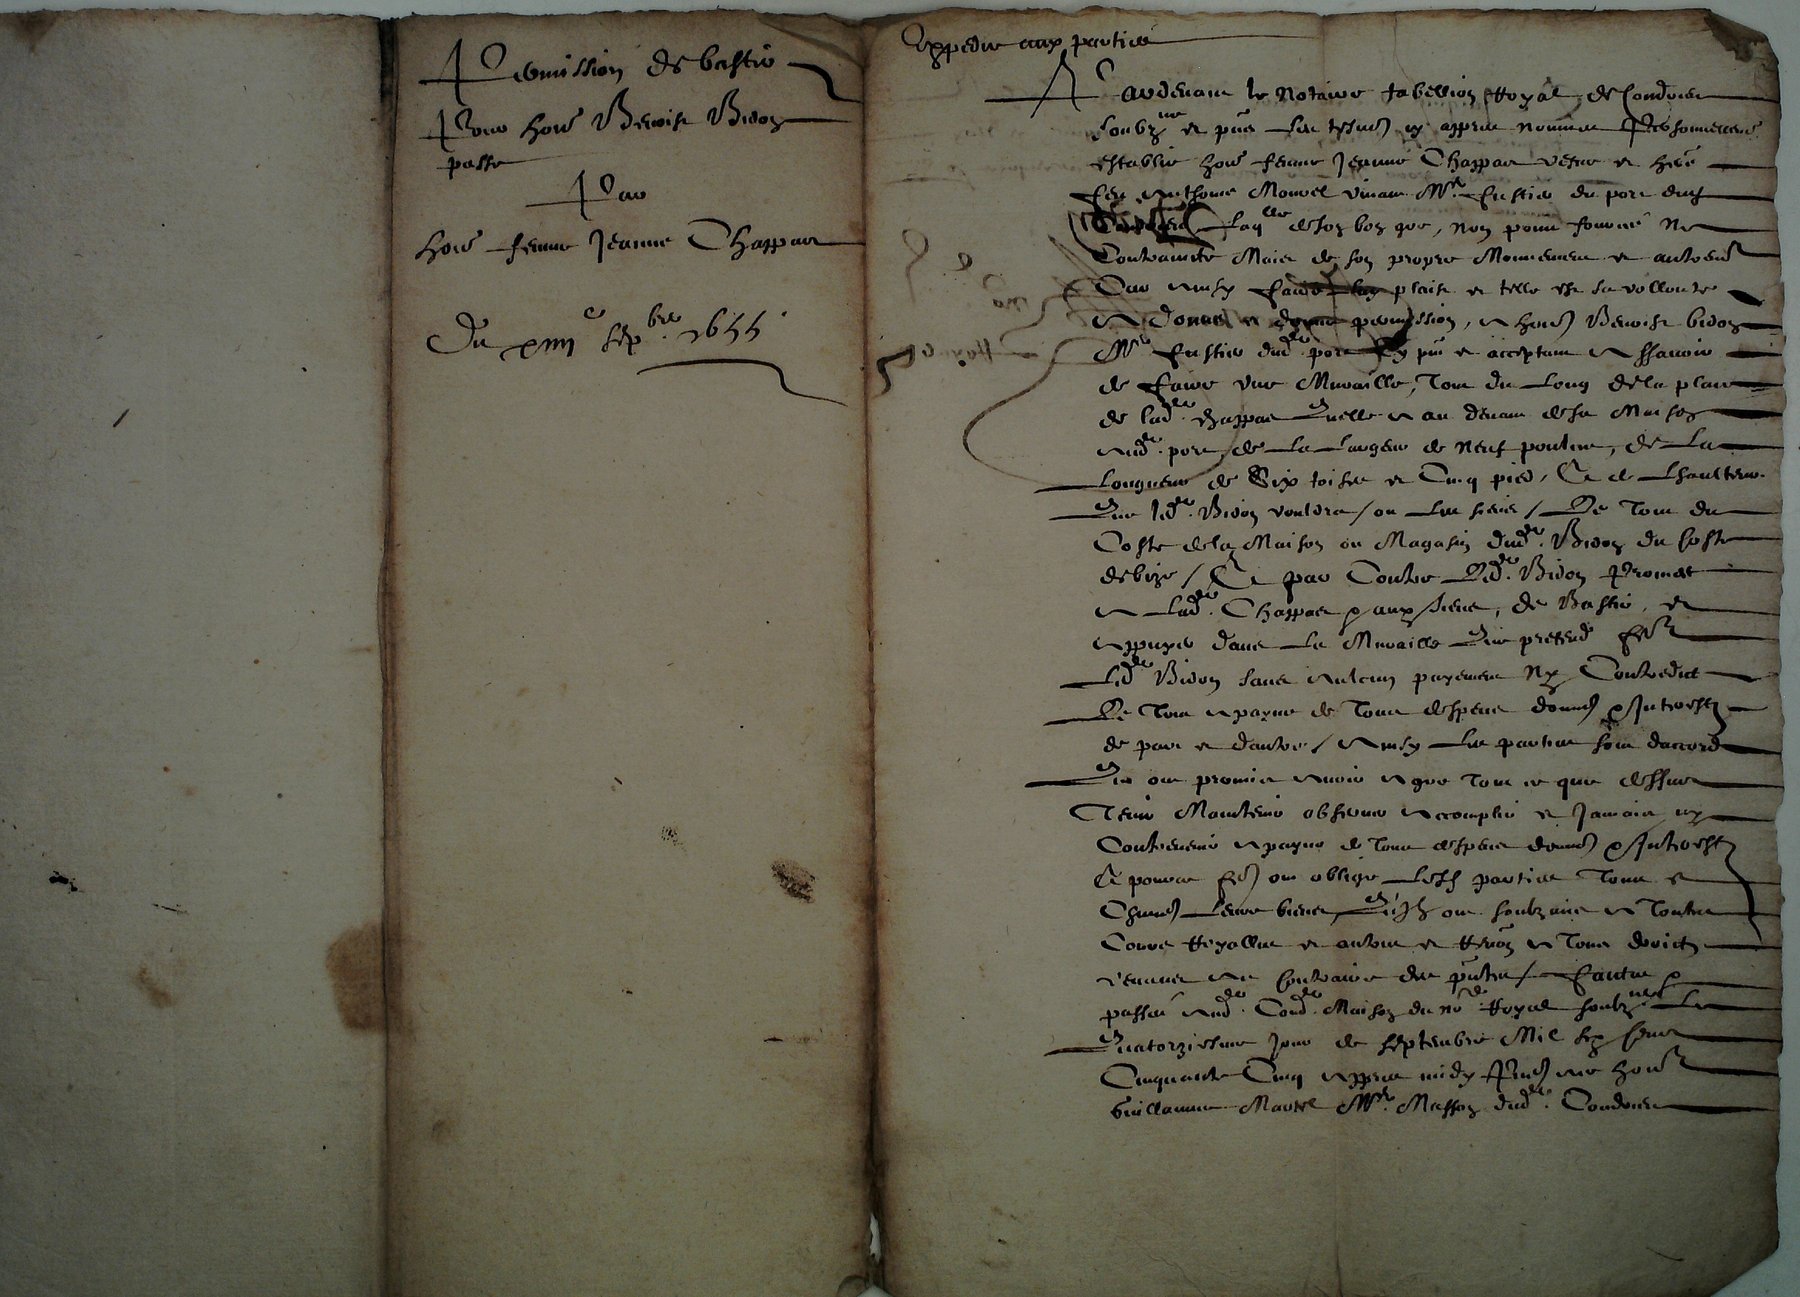 Permission de bastir
Pour hon Benoist Bidon
passe
Par
hon femme Jeanne Chappar
Du xiiii e sepbre 1655
Expedie aux parties
Pardevant le Notaire tabellion Royal de Condrieu
soubz ne et pnt les tesmo cy appres nommes Personnellemt
establie hon femme Jeanne Chappar vefve et here
feu Anthoine Monvel vivant Mre fustier du port dud
laqlle de son bon gre, non point forcee ne
Contraincte Mais de son propre Mouvement et
Car ainsy plaist et telle est sa vollonte
A donne et permission, A hon Benoist bidon
Mre fustier dudt port Cy pnt et acceptant A ssavoir
de faire une Muraille, Tout du Long de la place
de ladte chappar quelle a au devant de sa Maison
Audt port de La Largeur de neuf poulces, de La
Longueur de Six toises et Cinq pied, Et de Lhaulteur
Que ledt Bidon vouldra / ou Les siens / Le Tout du
Coste de la Maison ou Magasin dudt Bidon du coste
de bize / Et par Contre Ledt Bidon Promet
A Ladte Chappar & aux siens, de Bastir, et
Appuyer dans La Muraille Que pretend fere
Ledt Bidon sans Aulcun payement Ny Contredict
Le Tout A payne de Tous despens domes & Interestz
de part et daultre / Ainsy Les parties sont daccord
Qui ont promis Avoir A gre Tout ce que dessus
Tenir Maintenir observer Accomplir et Jamais ny
Contrevenir A payne de Tous despens domes & Interestz
Et pour ce fe ont oblige Lesd parties Tous et
Chuns Leurs biens, Quilz ont soubzmis A Toutes
Cours Royalles et aultres et Renon A Tous droictz
Au Contraire des pntes / faict &
passe Audt Cond Maison du nre Royal soubzne Le
Quatorziesme Jour de septembre Mil six Cens
Cinquante Cinq Appres midy Pnts hon
Guillaume Martel Mre Masson dudt Condrieu